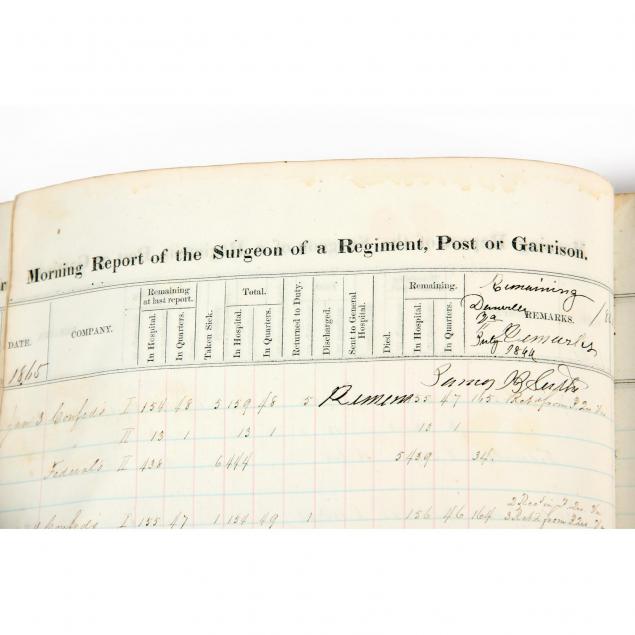 Morning Report of the Surgeon of a Regiment, Post or Garrison.
DATE.
COMPANY.
Remaining at last report.
In Hospital.
In Quarters.
Taken Sick.
Total.
In Hospital.
In Quarters.
Returned to Duty.
Discharged.
Sent to General Hospital.
Died.
Remaining.
In Hospital.
In Quarters.
REMARKS.
Remaining
Danville
Va
Remarks
1864
1865
Jan 3 Confeds I 154 48 5 159 48 5 155 47 165
II 13 1 13 1 13 1
Federals II 438 6 444 5 439 34
Confeds I 155 47 1 154 49 1 156 46 164